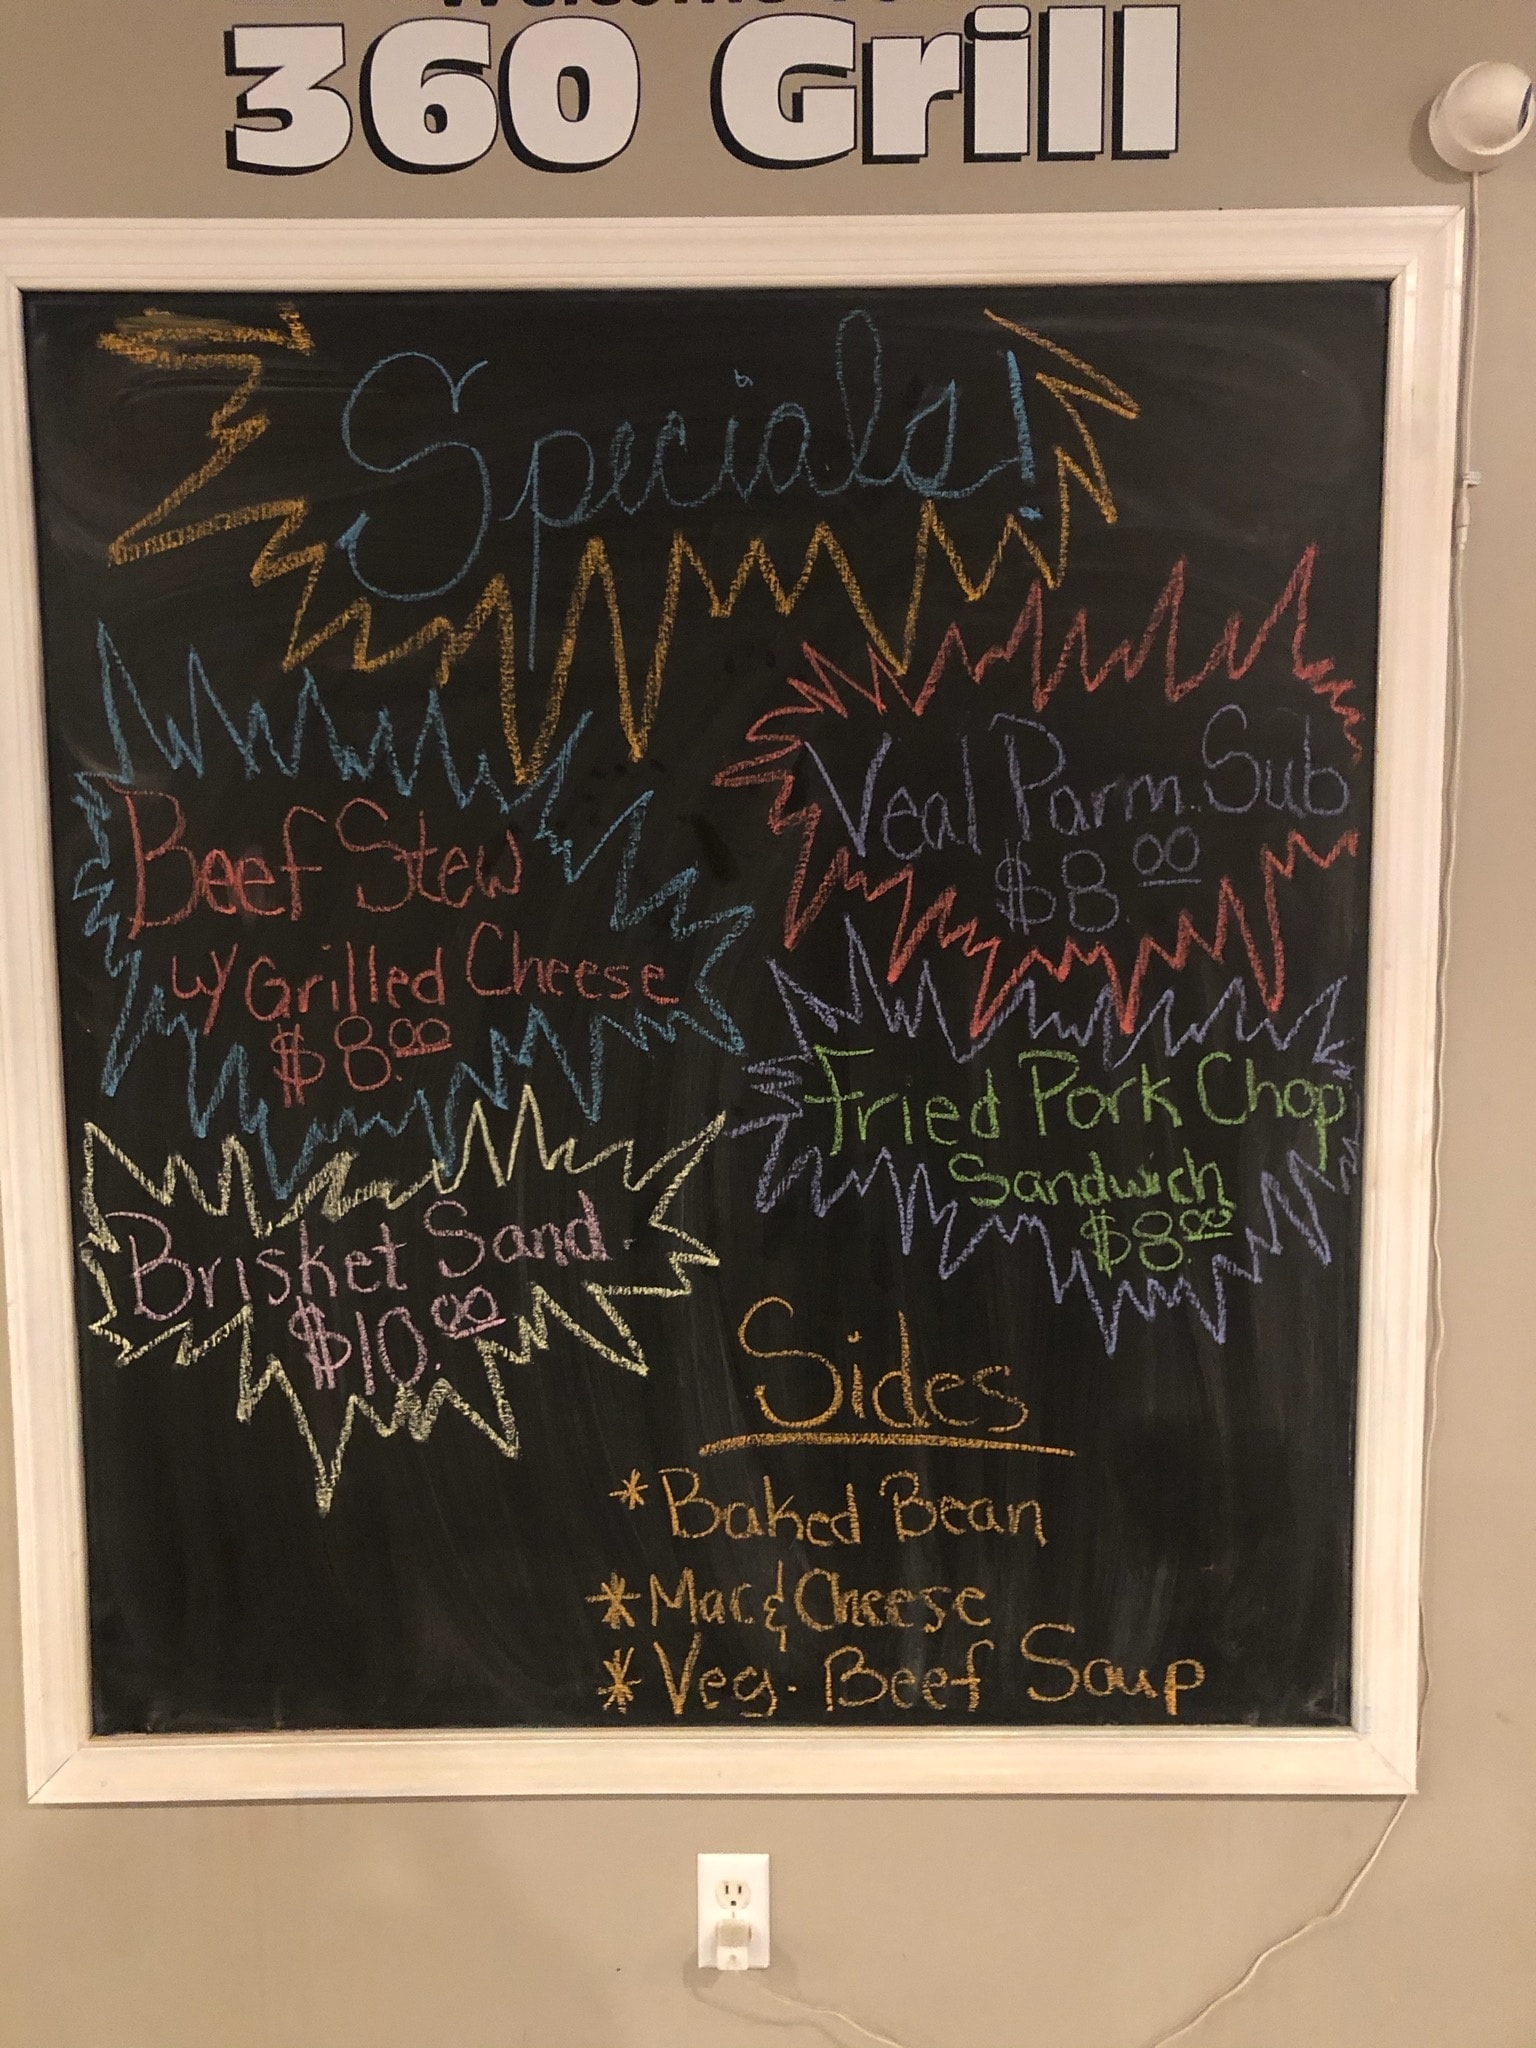 360 Grill
Specials!
Beef Stew
w/ Grilled Cheese
$8.00
Veal Parm. Sub
$8.00
Fried Pork Chop
Sandwich
$8.00
Brisket Sand.
$10.00
Sides
*Baked Bean
*Mac & Cheese
*Veg. Beef Soup